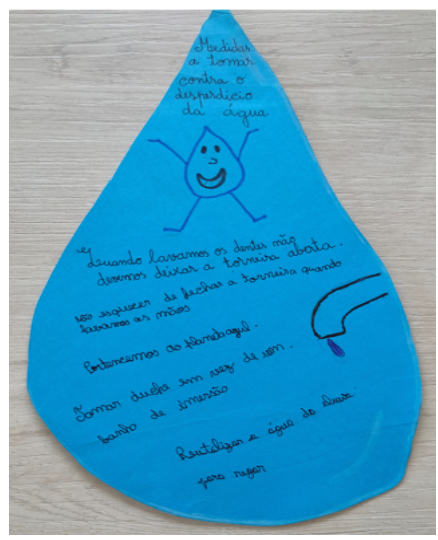 Medidas
a tomar
contra o
desperdício
da água
Quando lavamos os dentes não
devemos deixar a torneira aberta.
não esquecer de fechar a torneira quando
lavamos as mãos
Pertencemos ao planeta azul.
Tomar duche em vez de um
banho de imersão
Reutilizar a água da chuva
para regar